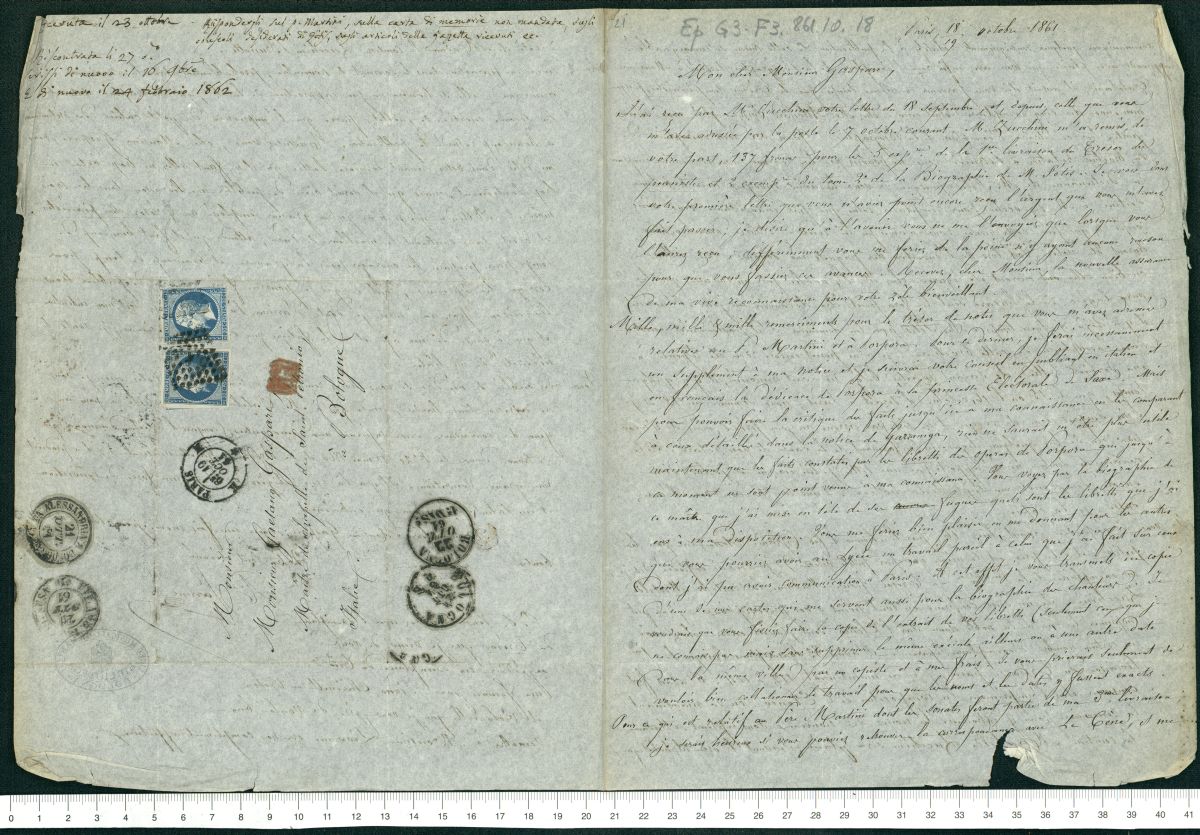 Ricevuta il 23 ottobre - Rispondergli sul p. Martini, sulla carta di memorie non mandata, sugli
di Gésu, sugli articoli della gazzetta ricevuti ec.
Riscontrata li 27 do
di nuovo il 16 9bre
e di nuovo il 24 febbraio 1862
21
Ep G3-F3. 861.10.18
Paris, 18 octobre 1861
19
Mon cher Monsieur Gaspari,
J'ai reçu par Mr Zucchini votre lettre du 18 Septembre, et, depuis, celle que vous
m'avez adressée par la poste le 7 octobre courant. M. Zucchini m'a remis, de
votre part, 137 francs pour les 5 expres de la 1re livraison du Trésor des
pianistes et 2 exemp. du tome 2e de la Biographie de M. Fétis. Je vois dans
votre première lettre que vous n'aviez point encore reçu l'argent que vous m'avez
fait passer; je désire qu'à l'avenir vous ne me l'envoyiez que lorsque vous
l'aurez reçu; différemment vous me feriez de la peine n'y ayant aucune raison
pour que vous fassiez ces avances. Recevez, cher Monsieur, la nouvelle assurance
de ma vive reconnaissance pour votre zèle bienveillant.
Mille, mille & mille remerciments pour le trésor de notes que vous m'avez adressées
relatives au P. Martini et à Porpora. Pour ce dernier, je ferai incessamment
un supplément à ma notice et je suivrai votre conseil en publiant en italien et
en français la dédicace de Porpora à la princesse Electorale de Saxe. Mais
pour pouvoir faire la critique des faits jusqu'ici à ma connaissance en les comparant
à ceux détaillés dans la notice de rien ne saurait m'être plus utile
maintenant que les faits constatés par les libretti des operas de Porpora qui jusqu'à
ce moment ne sont point venus à ma connaissance. Vous voyez par la biographie de
ce maître que j'ai mise en tête de ses fugues quels sont les libretti que j'ai
eus à ma disposition. Vous me feriez bien plaisir en me donnant pour les autres
que vous pourriez avoir au Lycée un travail pareil à celui que j'ai fait sur ceux
dont j'ai pu avoir communication à Paris. A cet effet je vous transmets la copie
d'une de mes cartes qui me servent aussi pour la biographie des chanteurs. Je
voudrais que vous fissiez faire la copie de l'extrait de vos libretti (seulement ceux que je
ne connais pas mais sans supprimer le même exécuté ailleurs ou à une autre date
dans la même ville) par un copiste et à mes frais. Je vous prierais seulement de
vouloir bien collationner le travail pour que les noms et les dates y fussent exacts.
Pour ce qui est relatif au Père Martini dont les sonates feront partie de ma 3me livraison
je serais heureux si vous pouviez retrouver la correspondance avec Le Cène, et me
Monsieur
Monsieur Gaetano Gaspari
Maître de chapelle de Saint Pétronio
à Bologne
Italie
PARIS
19
OCT
61
BOLOGNA
22
OTT
61
BOLOGNA
21
61